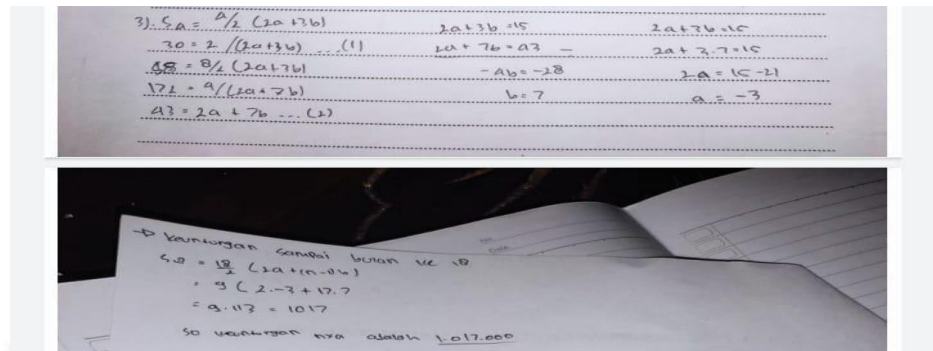 3). S4 = 4/2 (2a+3b)
30 = 2 /(2a+3b) ... (1)
S8 = 8/2 (2a+7b)
172 = 4/(2a+7b)
43 = 2a + 7b ... (2)
2a+3b = 15
2a + 7b = 43 -
-4b = -28
b = 7
2a+3b = 15
2a + 3.7 = 15
2a = 15-21
a = -3
→ keuntungan sampai bulan ke 18
S18 = 18/2 (2a+(n-1)b)
= 9 (2.-3+17.7
= 9.113 = 1017
So keuntungan nya adalah 1.017.000